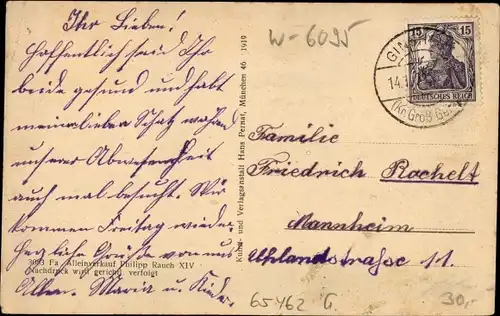 Ihr Lieben!
Hoffentlich seid Ihr
beide gesund und habt
meinen lieben Schatz während
unserer Abwesenheit
auch mal besucht. Wir
kommen Freitag wieder.
Herzliche Grüße von uns
Allen. Maria u. Kinder.
3003 Fa. Alleinverkauf Philipp Rauch XIV
Nachdruck wird gerichtl. verfolgt
Kunst- und Verlagsanstalt Hans Pernat, München 46 1919
W-6095
15 15
DEUTSCHES REICH
14.
(Kr. Groß Ge
Familie
Friedrich Rachelt
Mannheim
Uhlandstraße 11.
65462 G.
30,-